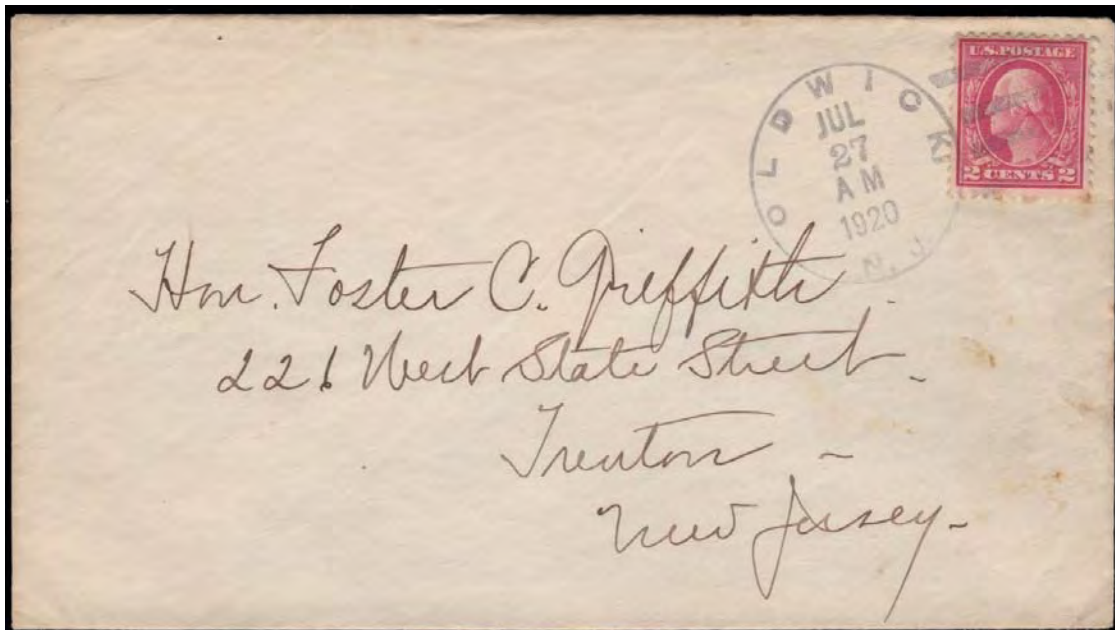 OLDWICK
JUL
27
AM
1920
N. J.
U.S. POSTAGE
2 CENTS 2
Hon. Foster C. Griffith
226 West State Street
Trenton
New Jersey